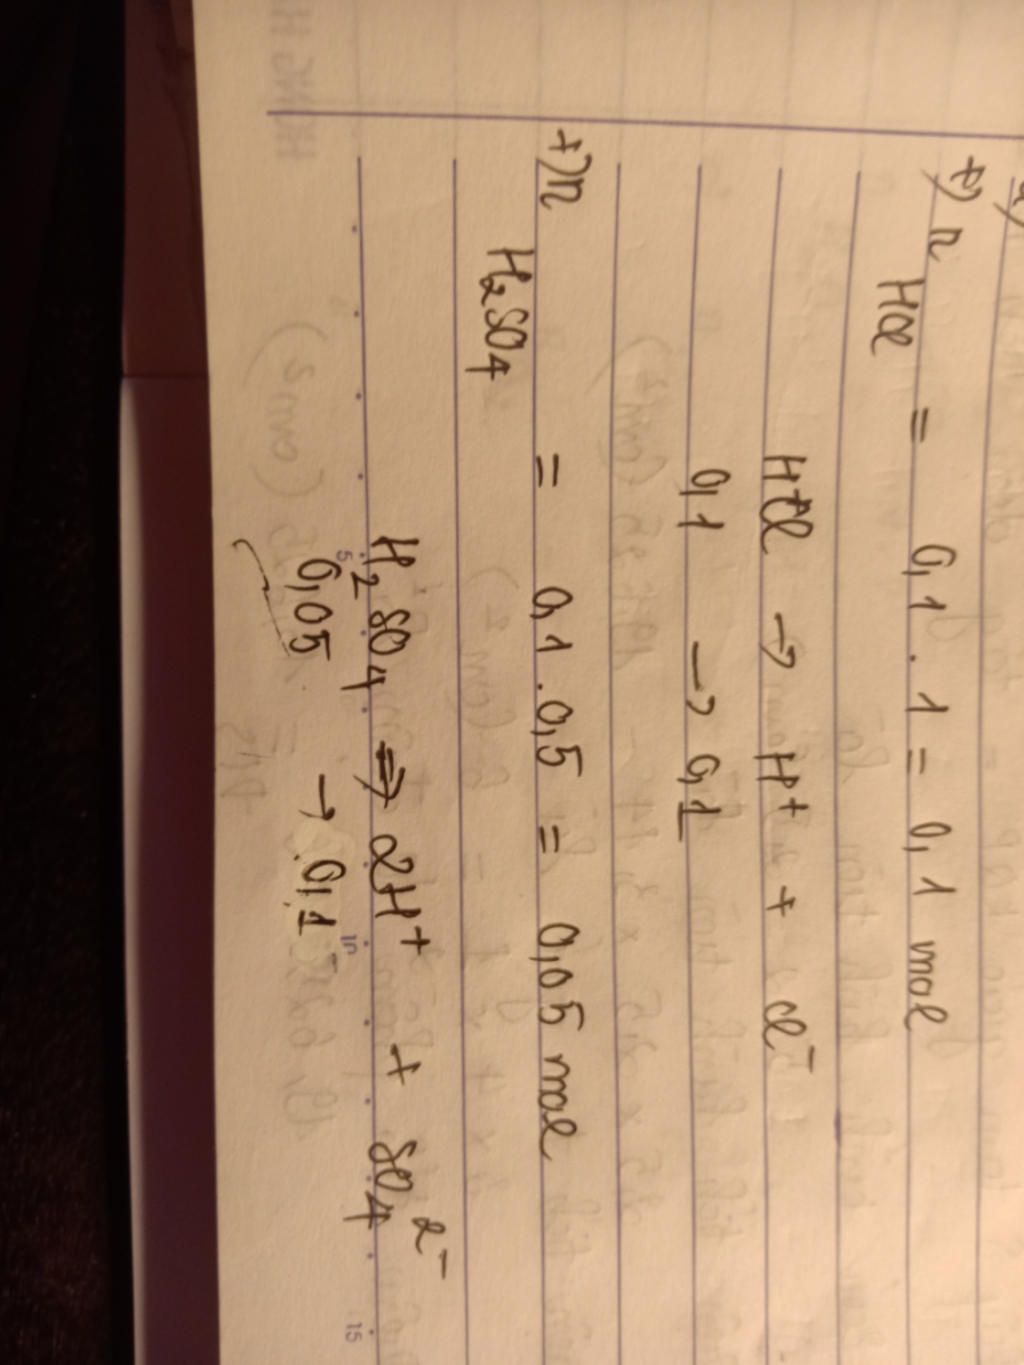 a)
+) n HCl = 0,1 . 1 = 0,1 mol
HCl → H⁺ + Cl⁻
0,1 → 0,1
+) n H₂SO₄ = 0,1 . 0,5 = 0,05 mol
H₂SO₄ → 2H⁺ + SO₄²⁻
0,05 → 0,1
5 10 15